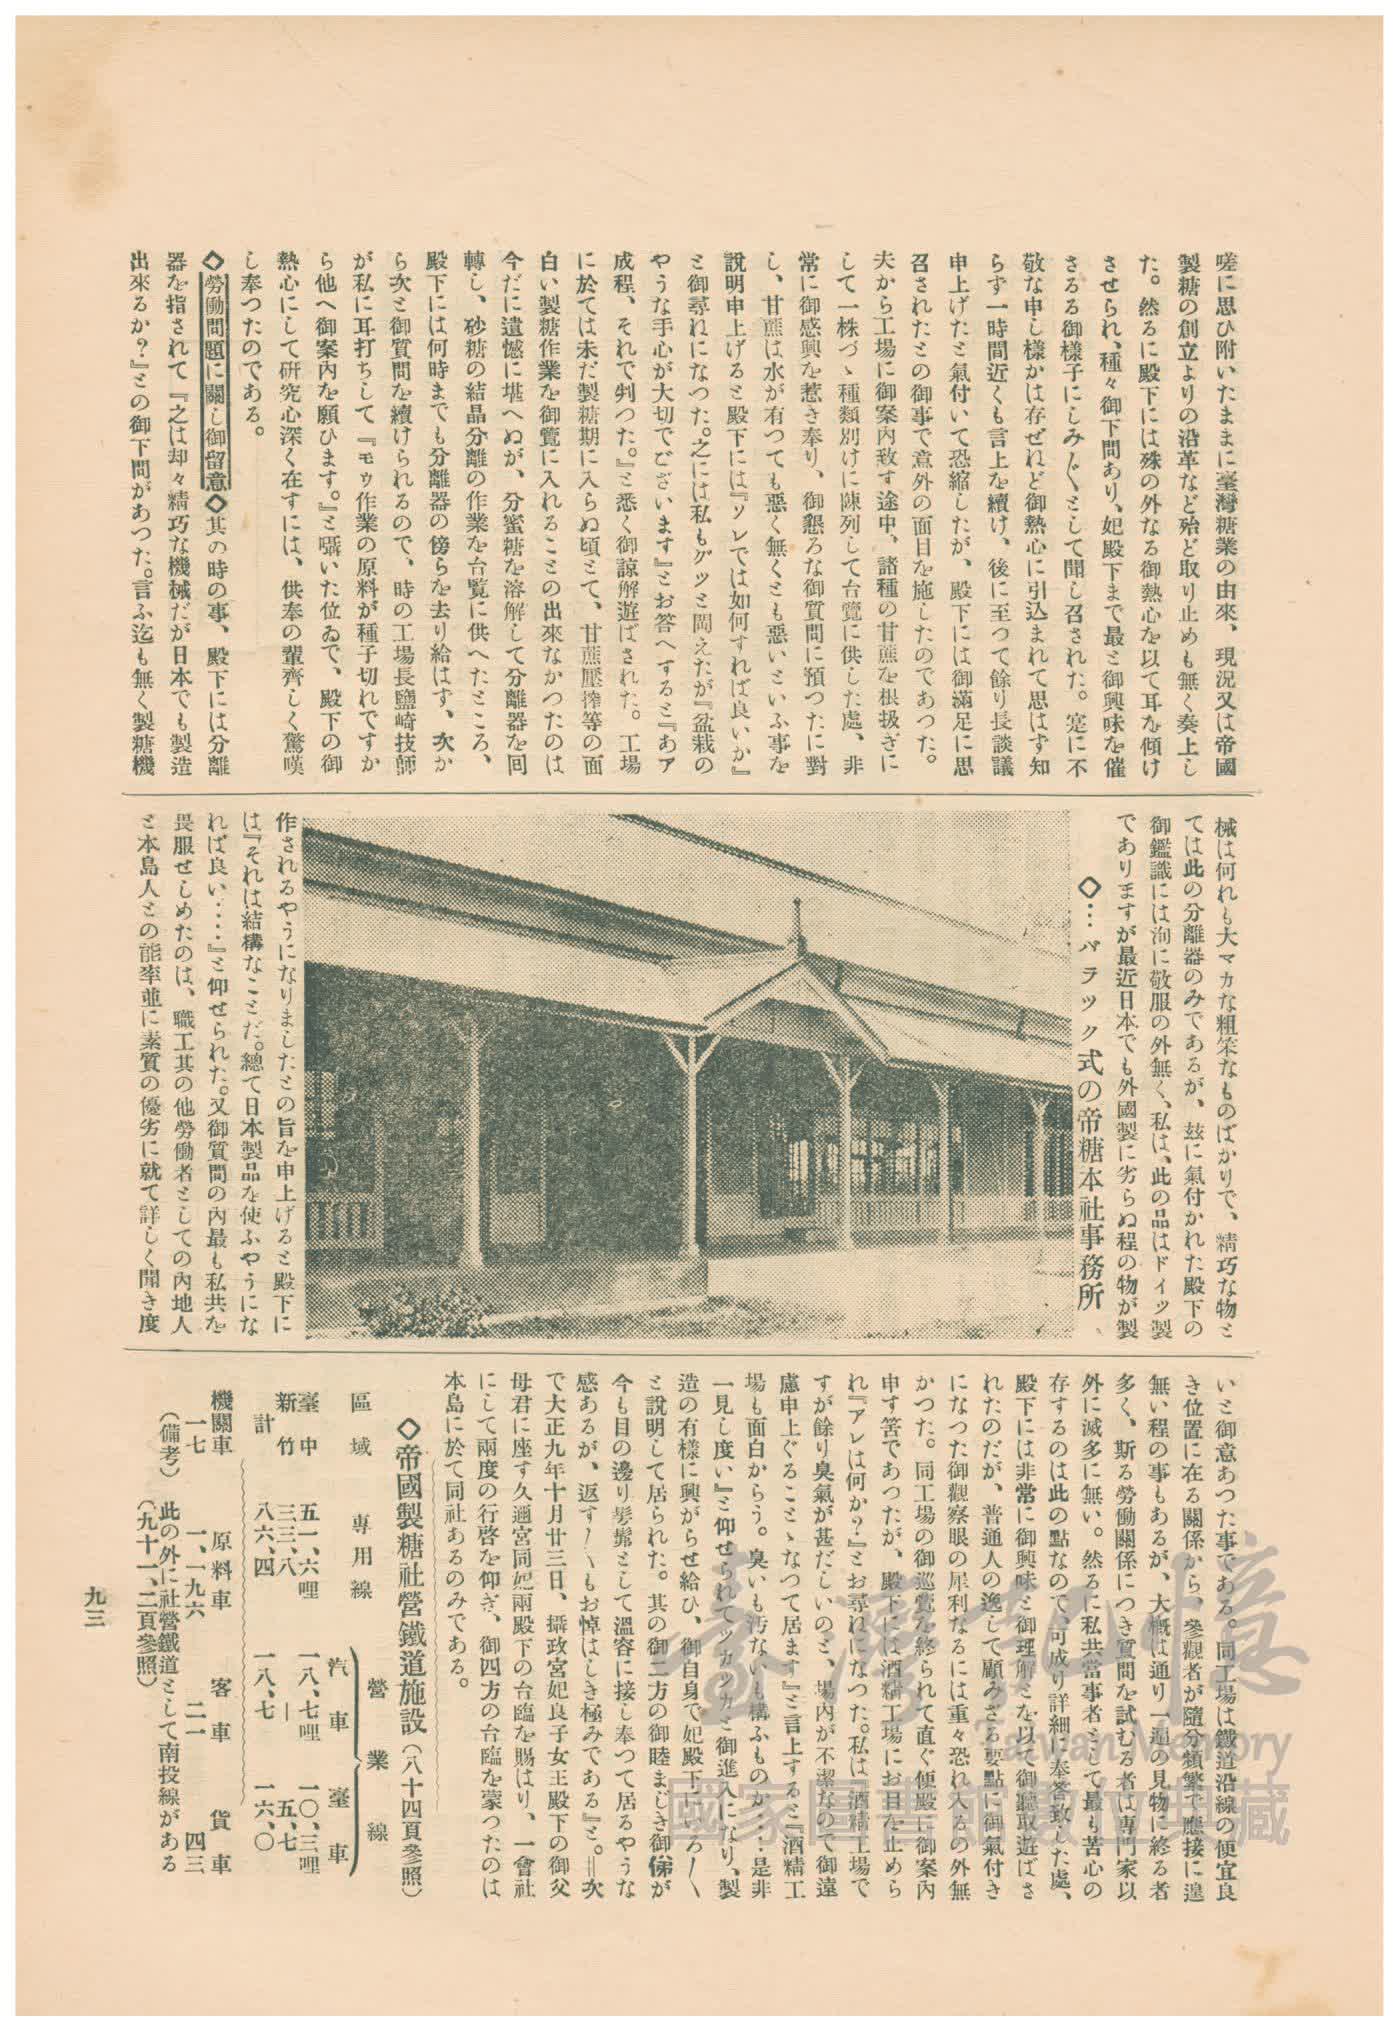 嗟に思ひ附いたままに臺灣糖業の由來、現況又は帝國
製糖の創立よりの沿革など殆ど取り止めも無く奏上し
た。然るに殿下には殊の外なる御熱心を以て耳を傾け
させられ、種々御下問あり、妃殿下まで最と御興味を催
さるる御樣子にしみ〴〵として聞し召された。寔に不
敬な申し樣かは存ぜねど御熱心に引込まれて思はず知
らず一時間近くも言上を續け、後に至つて餘り長談議
申上げたと氣付いて恐縮したが、殿下には御滿足に思
召されたとの御事で意外の面目を施したのであつた。
夫から工場に御案內致す途中、諸種の甘蔗を根扱ぎに
して一株づゝ種類別けに陳列して台覽に供した處、非
常に御感興を惹き奉り、御懇ろな御質問に預つたに對
し、甘蔗は水が有つても惡く無くとも惡いといふ事を
說明申上げると殿下には『ソレでは如何すれば良いか』
と御尋ねになつた。之には私もグッと悶えたが『盆栽の
やうな手心が大切でございます』とお答へすると『あア
成程、それで判つた。』と悉く御諒解遊ばされた。工場
に於ては未だ製糖期に入らぬ頃とて、甘蔗壓搾等の面
白い製糖作業を御覽に入れることの出來なかつたのは
今だに遺憾に堪へぬが、分蜜糖を溶解して分離器を回
轉し、砂糖の結晶分離の作業を台覽に供へたところ、
殿下には何時までも分離器の傍らを去り給はず、次か
ら次と御質問を續けられるので、時の工場長鹽崎技師
が私に耳打ちして『モゥ作業の原料が種子切れですか
ら他へ御案內を願ひます。』と囁いた位ゐで、殿下の御
熱心にして硏究心深く在すには、供奉の輩齊しく驚嘆
し奉つたのである。
◇勞働問題に關し御留意◇其の時の事、殿下には分離
器を指されて『之は却々精巧な機械だが日本でも製造
出來るか？』との御下問があつた。言ふ迄も無く製糖機
械は何れも大マカな粗笨なものばかりで、精巧な物と
ては此の分離器のみであるが、玆に氣付かれた殿下の
御鑑識には洵に敬服の外無く、私は、此の品はドイツ製
でありますが最近日本でも外國製に劣らぬ程の物が製
◇…バラック式の帝糖本社事務所
作されるやうになりましたとの旨を申上げると殿下に
は『それは結構なことだ。總て日本製品を使ふやうにな
れば良い‥‥』と仰せられた。又御質問の內最も私共を
畏服せしめたのは、職工其の他勞働者としての內地人
と本島人との能率並に素質の優劣に就て詳しく聞き度
いと御意あつた事である。同工場は鐵道沿線の便宜良
き位置に在る關係から、參觀者が隨分頻繁で應接に遑
無い程の事もあるが、大槪は通り一遍の見物に終る者
多く、斯る勞働關係につき質問を試むる者は專門家以
外に滅多に無い。然るに私共當事者として最も苦心の
存するのは此の點なので、可成り詳細に奉答致した處、
殿下には非常に御興味と御理解とを以て御聽取遊ばさ
れたのだが、普通人の逸して顧みざる要點に御氣付き
になつた御觀察眼の犀利なるには重々恐れ入るの外無
かつた。同工場の御巡覽を終られて直ぐ便殿に御案內
申す筈であつたが、殿下には酒精工場にお目を止めら
れ『アレは何か？』とお尋ねになつた。私は『酒精工場で
すが餘り臭氣が甚だしいのと、場內が不潔なので御遠
慮申上ぐることゝなつて居ます』と言上すると『酒精工
場も面白からう。臭いも汚ないも構ふものか‥‥是非
一見し度い』と仰せられてツカツカと御進入になり、製
造の有樣に興がらせ給ひ、御自身で妃殿下にいろ〳〵
と說明して居られた。其の御二方の御睦まじき御俤が
今も目の邊り髣髴として溫容に接し奉つて居るやうな
感あるが、返す〳〵もお悼はしき極みである』と。＝次
で大正九年十月廿三日、攝政宮妃良子女王殿下の御父
母君に座す久邇宮同妃兩殿下の台臨を賜はり、一會社
にして兩度の行啓を仰ぎ、御四方の台臨を蒙つたのは
本島に於て同社あるのみである。
◇帝國製糖社營鐵道施設（八十四頁參照）
區域　專用線　營業線
汽車　臺車
臺中　五一、六哩　一八、七哩　一〇、三哩
新竹　三三、八　―　五、七
計　八六、四　一八、七　一六、〇
機關車　原料車　客車　貨車
一七　一、一九六　二一　四三
（備考）此の外に社營鐵道として南投線がある
（九十一、二頁參照）
九三
臺灣記憶
Taiwan Memory
國家圖書館數位典藏